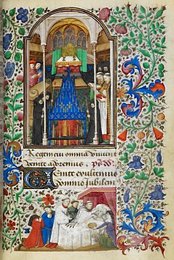 Regem cui omnia viuunt
venite adoremus ps
Venite exultemus
domino jubilem